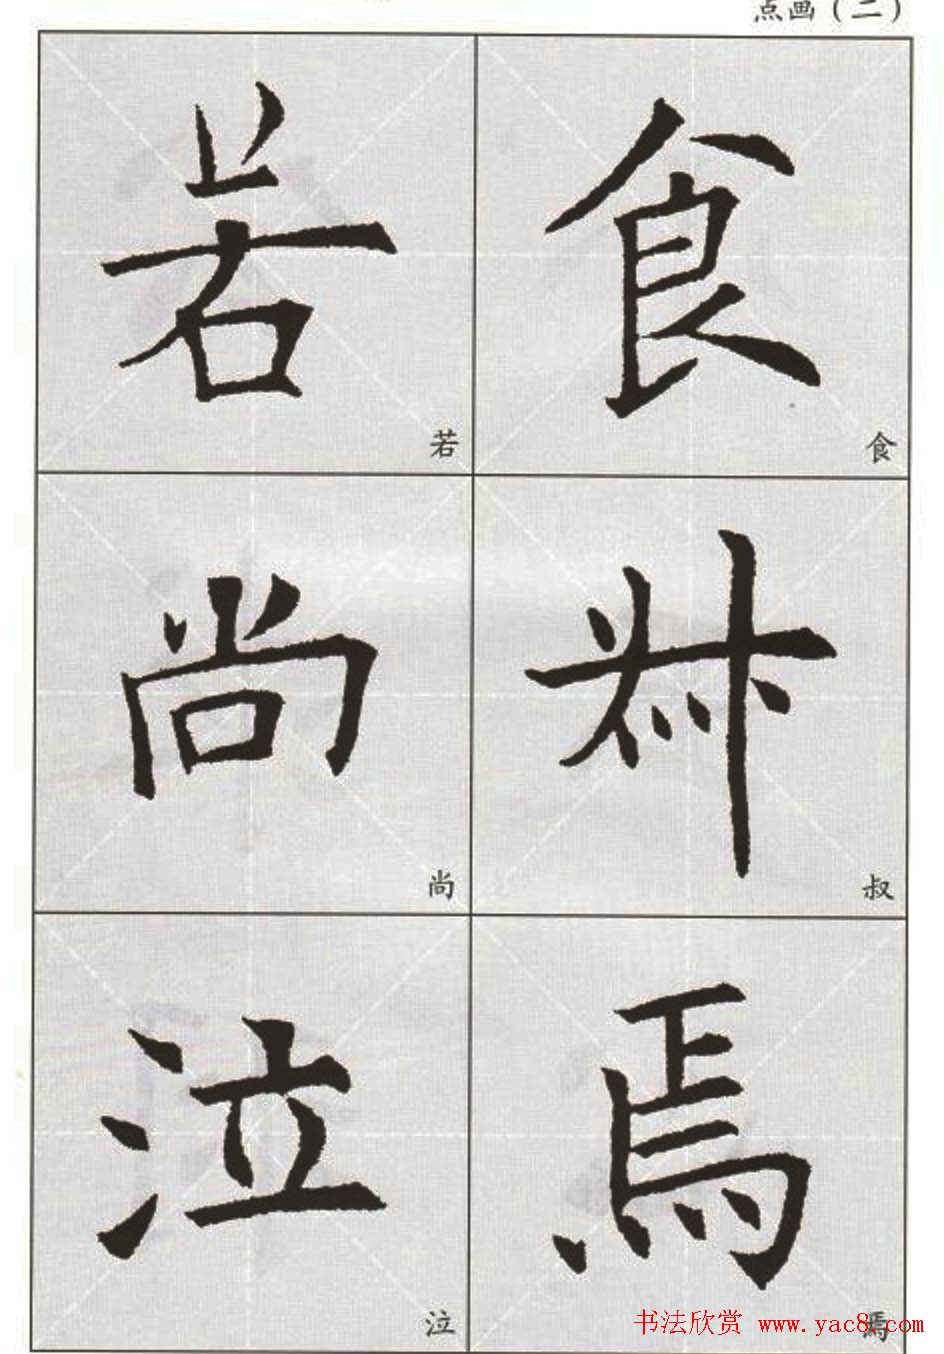 点画（二）
若 食
若 食
尚 叔
尚 叔
泣 焉
泣 焉
书法欣赏 www.yac8.com